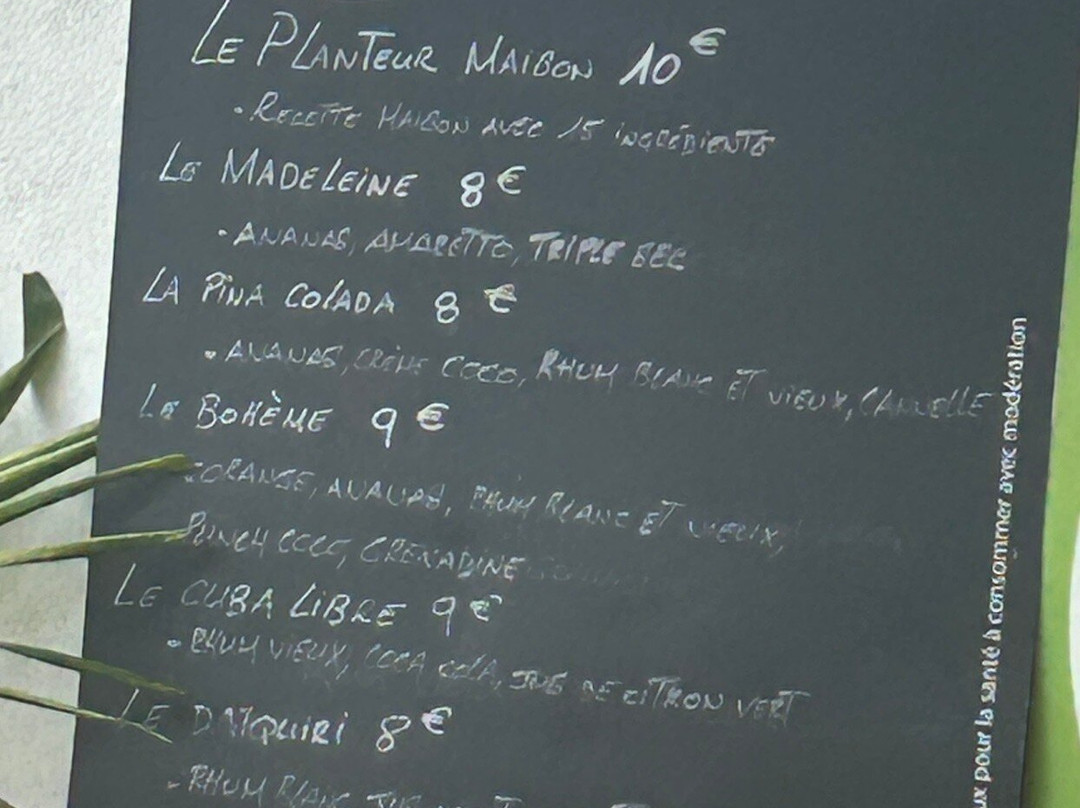 LE PLANTEUR MAISON 10€
• RECETTE MAISON AVEC 15 INGRÉDIENTS
LE MADELEINE 8€
• ANANAS, AMARETTO, TRIPLE SEC
LA PIÑA COLADA 8€
• ANANAS, CRÈME COCO, RHUM BLANC ET VIEUX, CANNELLE
LE BOHÈME 9€
• ORANGE, ANANAS, RHUM BLANC ET VIEUX,
PUNCH COCO, GRENADINE
LE CUBA LiBRE 9€
• RHUM VIEUX, COCA COLA, JUS DE CITRON VERT
LE DAÏQUIRI 8€
• RHUM BLANC JUS
pour la santé à consommer avec modération